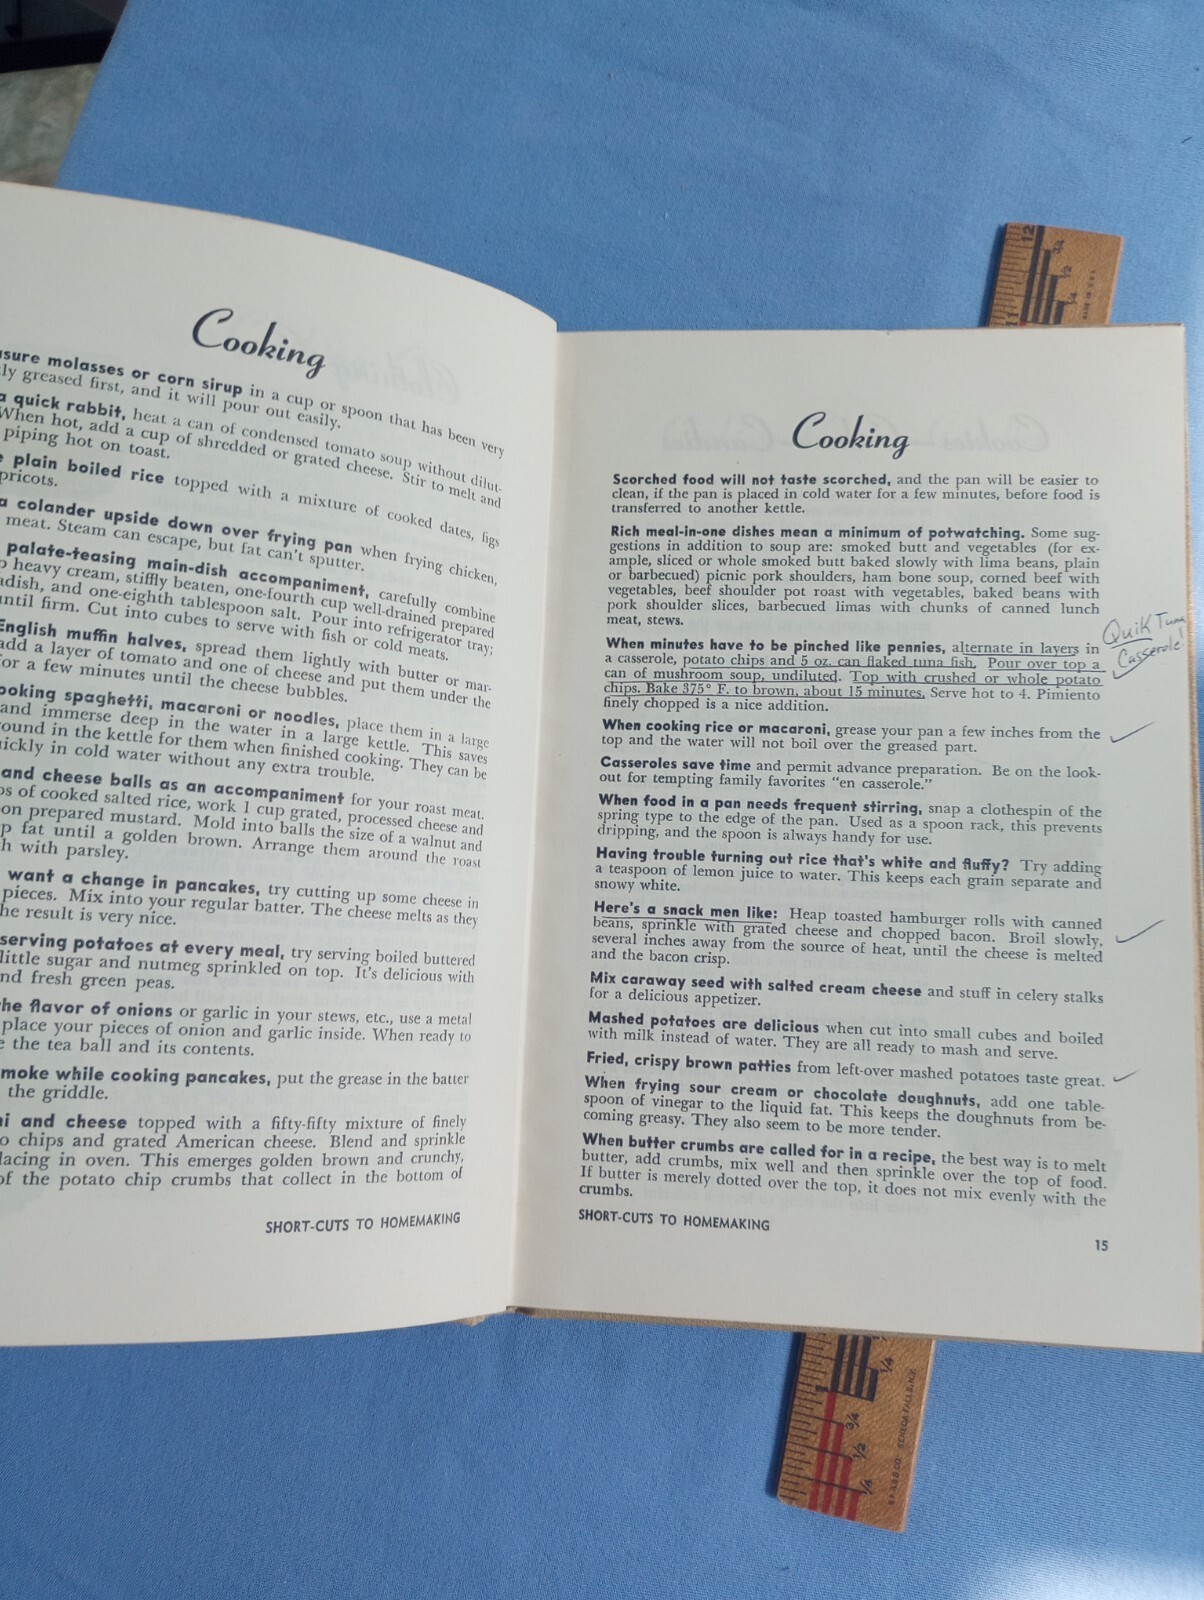 Cooking
sure molasses or corn sirup in a cup or spoon that has been very
ly greased first, and it will pour out easily.
a quick rabbit, heat a can of condensed tomato soup without dilut-
When hot, add a cup of shredded or grated cheese. Stir to melt and
piping hot on toast.
plain boiled rice topped with a mixture of cooked dates, figs
pricots.
a colander upside down over frying pan when frying chicken,
meat. Steam can escape, but fat can't sputter.
palate-teasing main-dish accompaniment, carefully combine
heavy cream, stiffly beaten, one-fourth cup well-drained prepared
adish, and one-eighth tablespoon salt. Pour into refrigerator tray;
until firm. Cut into cubes to serve with fish or cold meats.
English muffin halves, spread them lightly with butter or mar-
add a layer of tomato and one of cheese and put them under the
for a few minutes until the cheese bubbles.
ooking spaghetti, macaroni or noodles, place them in a large
and immerse deep in the water in a large kettle. This saves
ound in the kettle for them when finished cooking. They can be
uickly in cold water without any extra trouble.
and cheese balls as an accompaniment for your roast meat.
ps of cooked salted rice, work 1 cup grated, processed cheese and
on prepared mustard. Mold into balls the size of a walnut and
p fat until a golden brown. Arrange them around the roast
h with parsley.
want a change in pancakes, try cutting up some cheese in
pieces. Mix into your regular batter. The cheese melts as they
he result is very nice.
serving potatoes at every meal, try serving boiled buttered
little sugar and nutmeg sprinkled on top. It's delicious with
nd fresh green peas.
the flavor of onions or garlic in your stews, etc., use a metal
place your pieces of onion and garlic inside. When ready to
e the tea ball and its contents.
moke while cooking pancakes, put the grease in the batter
the griddle.
ni and cheese topped with a fifty-fifty mixture of finely
o chips and grated American cheese. Blend and sprinkle
lacing in oven. This emerges golden brown and crunchy,
of the potato chip crumbs that collect in the bottom of
SHORT-CUTS TO HOMEMAKING
Cooking
Scorched food will not taste scorched, and the pan will be easier to
clean, if the pan is placed in cold water for a few minutes, before food is
transferred to another kettle.
Rich meal-in-one dishes mean a minimum of potwatching. Some sug-
gestions in addition to soup are: smoked butt and vegetables (for ex-
ample, sliced or whole smoked butt baked slowly with lima beans, plain
or barbecued) picnic pork shoulders, ham bone soup, corned beef with
vegetables, beef shoulder pot roast with vegetables, baked beans with
pork shoulder slices, barbecued limas with chunks of canned lunch
meat, stews.
When minutes have to be pinched like pennies, alternate in layers in
a casserole, potato chips and 5 oz. can flaked tuna fish. Pour over top a
can of mushroom soup, undiluted. Top with crushed or whole potato
chips. Bake 375° F. to brown, about 15 minutes. Serve hot to 4. Pimiento
finely chopped is a nice addition.
Quik Tuna
Casserole!
When cooking rice or macaroni, grease your pan a few inches from the
top and the water will not boil over the greased part.
Casseroles save time and permit advance preparation. Be on the look-
out for tempting family favorites "en casserole."
When food in a pan needs frequent stirring, snap a clothespin of the
spring type to the edge of the pan. Used as a spoon rack, this prevents
dripping, and the spoon is always handy for use.
Having trouble turning out rice that's white and fluffy? Try adding
a teaspoon of lemon juice to water. This keeps each grain separate and
snowy white.
Here's a snack men like: Heap toasted hamburger rolls with canned
beans, sprinkle with grated cheese and chopped bacon. Broil slowly,
several inches away from the source of heat, until the cheese is melted
and the bacon crisp.
Mix caraway seed with salted cream cheese and stuff in celery stalks
for a delicious appetizer.
Mashed potatoes are delicious when cut into small cubes and boiled
with milk instead of water. They are all ready to mash and serve.
Fried, crispy brown patties from left-over mashed potatoes taste great.
When frying sour cream or chocolate doughnuts, add one table-
spoon of vinegar to the liquid fat. This keeps the doughnuts from be-
coming greasy. They also seem to be more tender.
When butter crumbs are called for in a recipe, the best way is to melt
butter, add crumbs, mix well and then sprinkle over the top of food.
If butter is merely dotted over the top, it does not mix evenly with the
crumbs.
SHORT-CUTS TO HOMEMAKING
15
12
3/4
1/2
1/4
11
MADE IN U.S.A.
1/4
1
3/4
1/2
1/4
SENECA FALLS, N.Y.